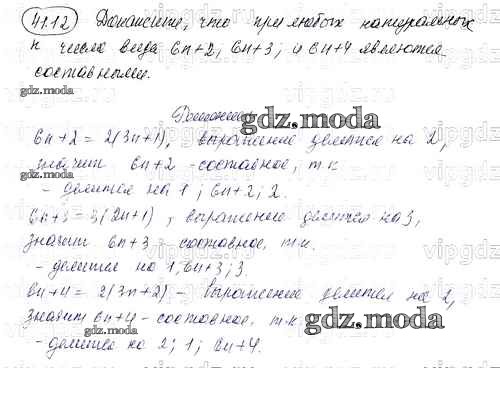 41.12 Докажите, что при любых натуральных
n числа вида 6n+2, 6n+3; и 6n+4 являются
составными.
gdz.moda
gdz.moda
6n+2 = 2(3n+1), выражение делится на 2,
значит 6n+2 - составное, т.к
gdz.moda
- делится на 1; 6n+2; 2.
6n+3 = 3(2n+1), выражение делится на 3,
значит 6n+3 - составное, т.к.
- делится на 1; 6n+3; 3.
gdz.moda
6n+4 = 2(3n+2) - выражение делится на 2,
значит 6n+4 - составное, т.к
gdz.moda
gdz.moda
- делится на 2; 1; 6n+4.